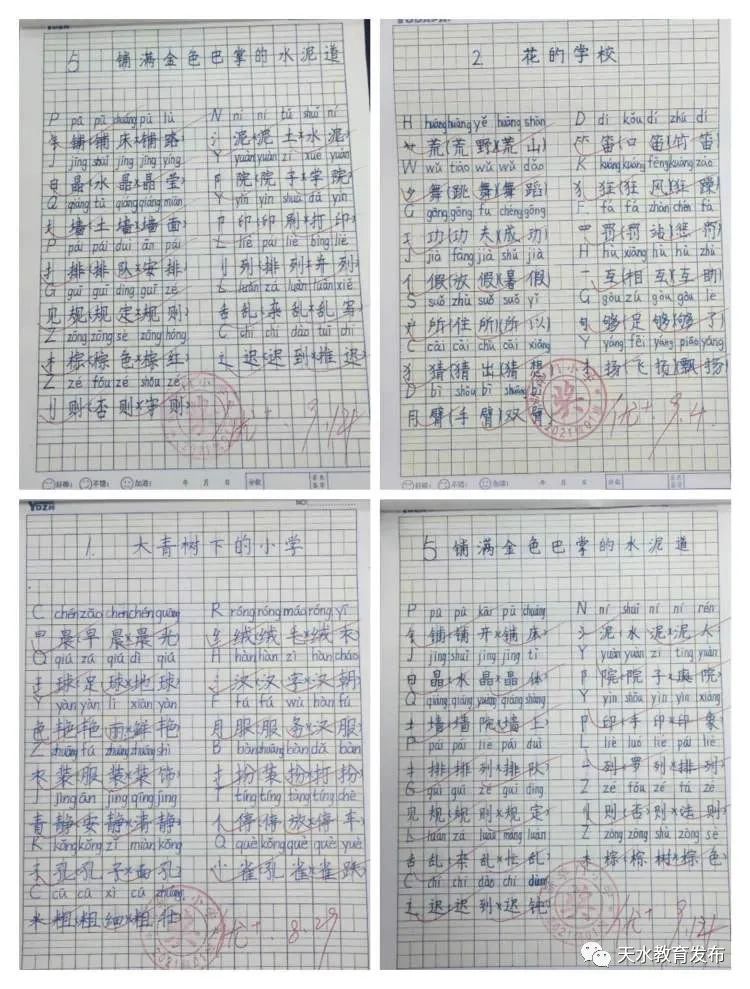 5 铺满金色巴掌的水泥道
P pū pū chuáng pū lù N ní ní tǔ shuǐ ní
铺(铺床)(铺路) 泥(泥土)(水泥)
J jīng shuǐ jīng jīng yíng Y yuàn yuàn zi xué yuàn
晶(水晶)(晶莹) 院(院子)(学院)
Q qiáng tǔ qiáng qiáng miàn Y yìn yìn shuā dǎ yìn
墙(土墙)(墙面) 印(印刷)(打印)
P pái pái duì ān pái L liè pái liè bìng liè
排(排队)(安排) 列(排列)(并列)
G guī guī dìng guī zé L luàn zá luàn luàn xiě
规(规定)(规则) 乱(杂乱)(乱写)
Z zōng zōng sè zōng hóng C chí chí dào tuī chí
棕(棕色)(棕红) 迟(迟到)(推迟)
Z zé fǒu zé shǒu zé
则(否则)(守则)
优+ 9.12
2. 花的学校
H huāng huāng yě huāng shān D dí kǒu dí zhú dí
荒(荒野)(荒山) 笛(口笛)(竹笛)
W wǔ tiào wǔ wǔ dǎo K kuáng kuáng fēng kuáng zào
舞(跳舞)(舞蹈) 狂(狂风)(狂躁)
G gōng gōng fu chéng gōng F fá fá zhàn chéng fá
功(功夫)(成功) 罚(罚站)(惩罚)
J jià fàng jià shǔ jià H hù xiāng hù hù zhù
假(放假)(暑假) 互(相互)(互助)
S suǒ zhù suǒ suǒ yǐ G gòu zú gòu gòu le
所(住所)(所以) 够(足够)(够了)
C cāi cāi chū cāi xiǎng Y yáng fēi yáng piāo yáng
猜(猜出)(猜想) 扬(飞扬)(飘扬)
B bì shǒu bì shuāng bì
臂(手臂)(双臂)
优+ 9.4
1. 大青树下的小学
C chén zǎo chén chén guāng R róng róng máo róng yī
晨(早晨)(晨光) 绒(绒毛)(绒衣)
Q qiú zú qiú dì qiú H hàn hàn zì hàn cháo
球(足球)(地球) 汉(汉字)(汉朝)
Y yàn yàn lì xiān yàn F fú fú wù hàn fú
艳(艳丽)(鲜艳) 服(服务)(汉服)
Z zhuāng fú zhuāng zhuāng shì B bàn zhuāng bàn dǎ bàn
装(服装)(装饰) 扮(装扮)(打扮)
J jìng ān jìng qīng jìng T tíng tíng fàng tíng chē
静(安静)(清静) 停(停放)(停车)
K kǒng kǒng zǐ miàn kǒng Q què kǒng què què yuè
孔(孔子)(面孔) 雀(孔雀)(雀跃)
C cū cū xì cū zhuàng
粗(粗细)(粗壮)
优+. 8.29
5 铺满金色巴掌的水泥道
P pū pū kāi pū chuáng N ní shuǐ ní ní rén
铺(铺开)(铺床) 泥(水泥)(泥人)
J jīng shuǐ jīng jīng tǐ Y yuàn yuàn zi tíng yuàn
晶(水晶)(晶体) 院(院子)(庭院)
Q qiáng qiáng yuàn qiáng shàng Y yìn shǒu yìn yìn xiàng
墙(墙院)(墙上) 印(手印)(印象)
P pái pái liè pái duì L liè luó liè pái liè
排(排列)(排队) 列(罗列)(排列)
G guī guī zé guī dìng Z zé fǒu zé fǎ zé
规(规则)(规定) 则(否则)(法则)
L luàn zá luàn máng luàn Z zōng zōng shù zōng sè
乱(杂乱)(忙乱) 棕(棕树)(棕色)
C chí chí dào chí dùn
迟(迟到)(迟钝)
优+ 9.12
天水教育发布